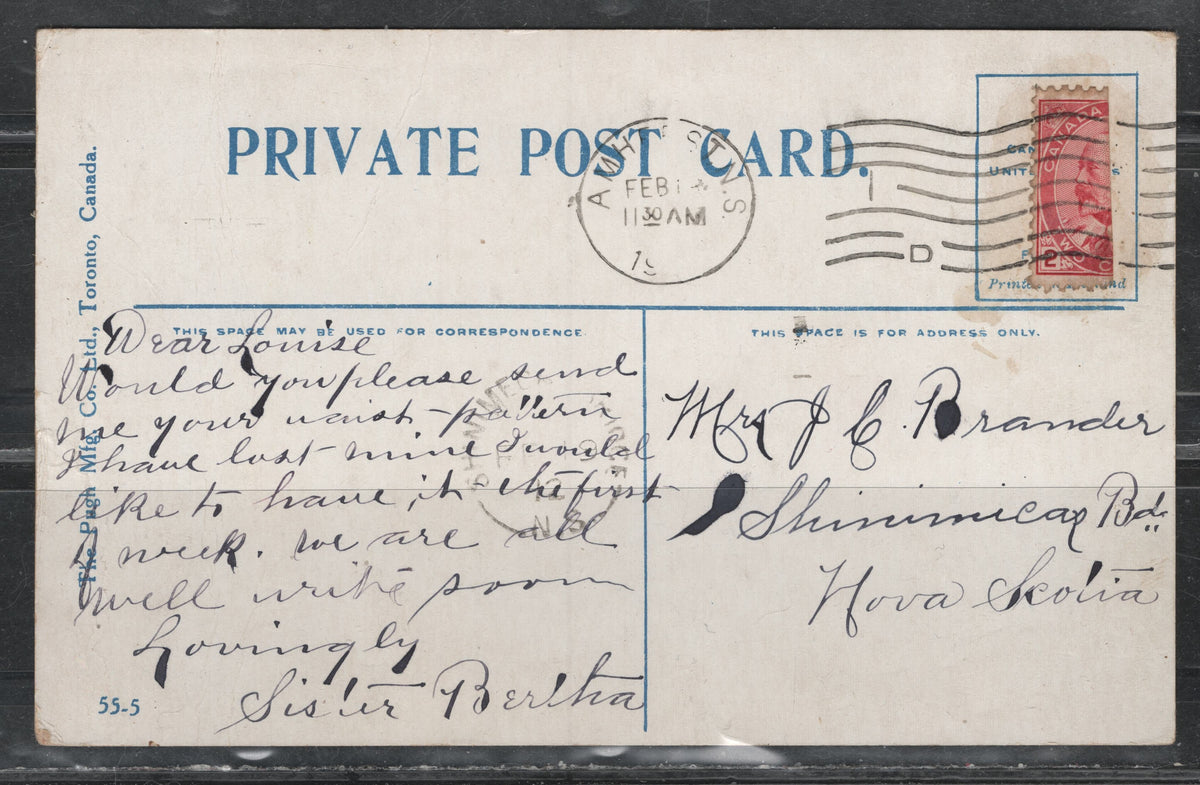 PRIVATE POST CARD.
AMHERST N.S.
FEB 1
11 30 AM
19
D
CANADA
2
Printed in England
The Pugh Mfg. Co. Ltd., Toronto, Canada.
THIS SPACE MAY BE USED FOR CORRESPONDENCE.
THIS SPACE IS FOR ADDRESS ONLY.
Dear Louise
Would you please send
me your waist pattern
I have lost mine I would
like to have it the first
of week. we are all
well write soon
Lovingly
Sister Bertha
Mrs J C. Brander
Shinimicas Bd.
Nova Scotia
12
N.S.
55-5